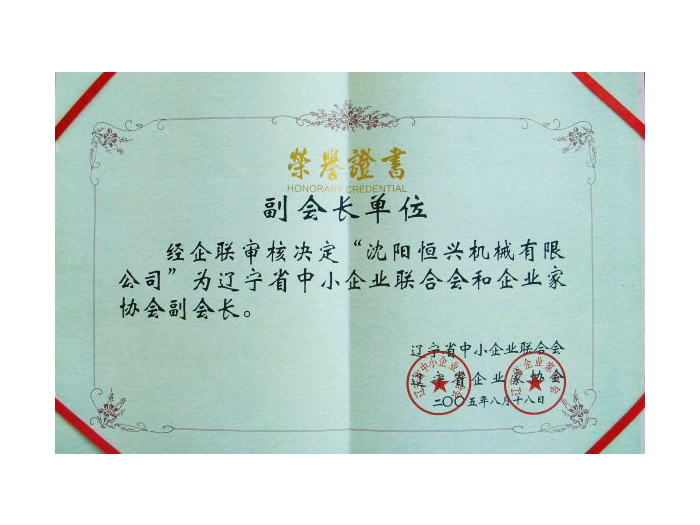 榮譽證書
HONORARY CREDENTIAL
副会长单位
经企联审核决定“沈阳恒兴机械有限
公司”为辽宁省中小企业联合会和企业家
协会副会长。
辽宁省中小企业联合会
辽宁省企业家协会
二〇〇五年八月十八日